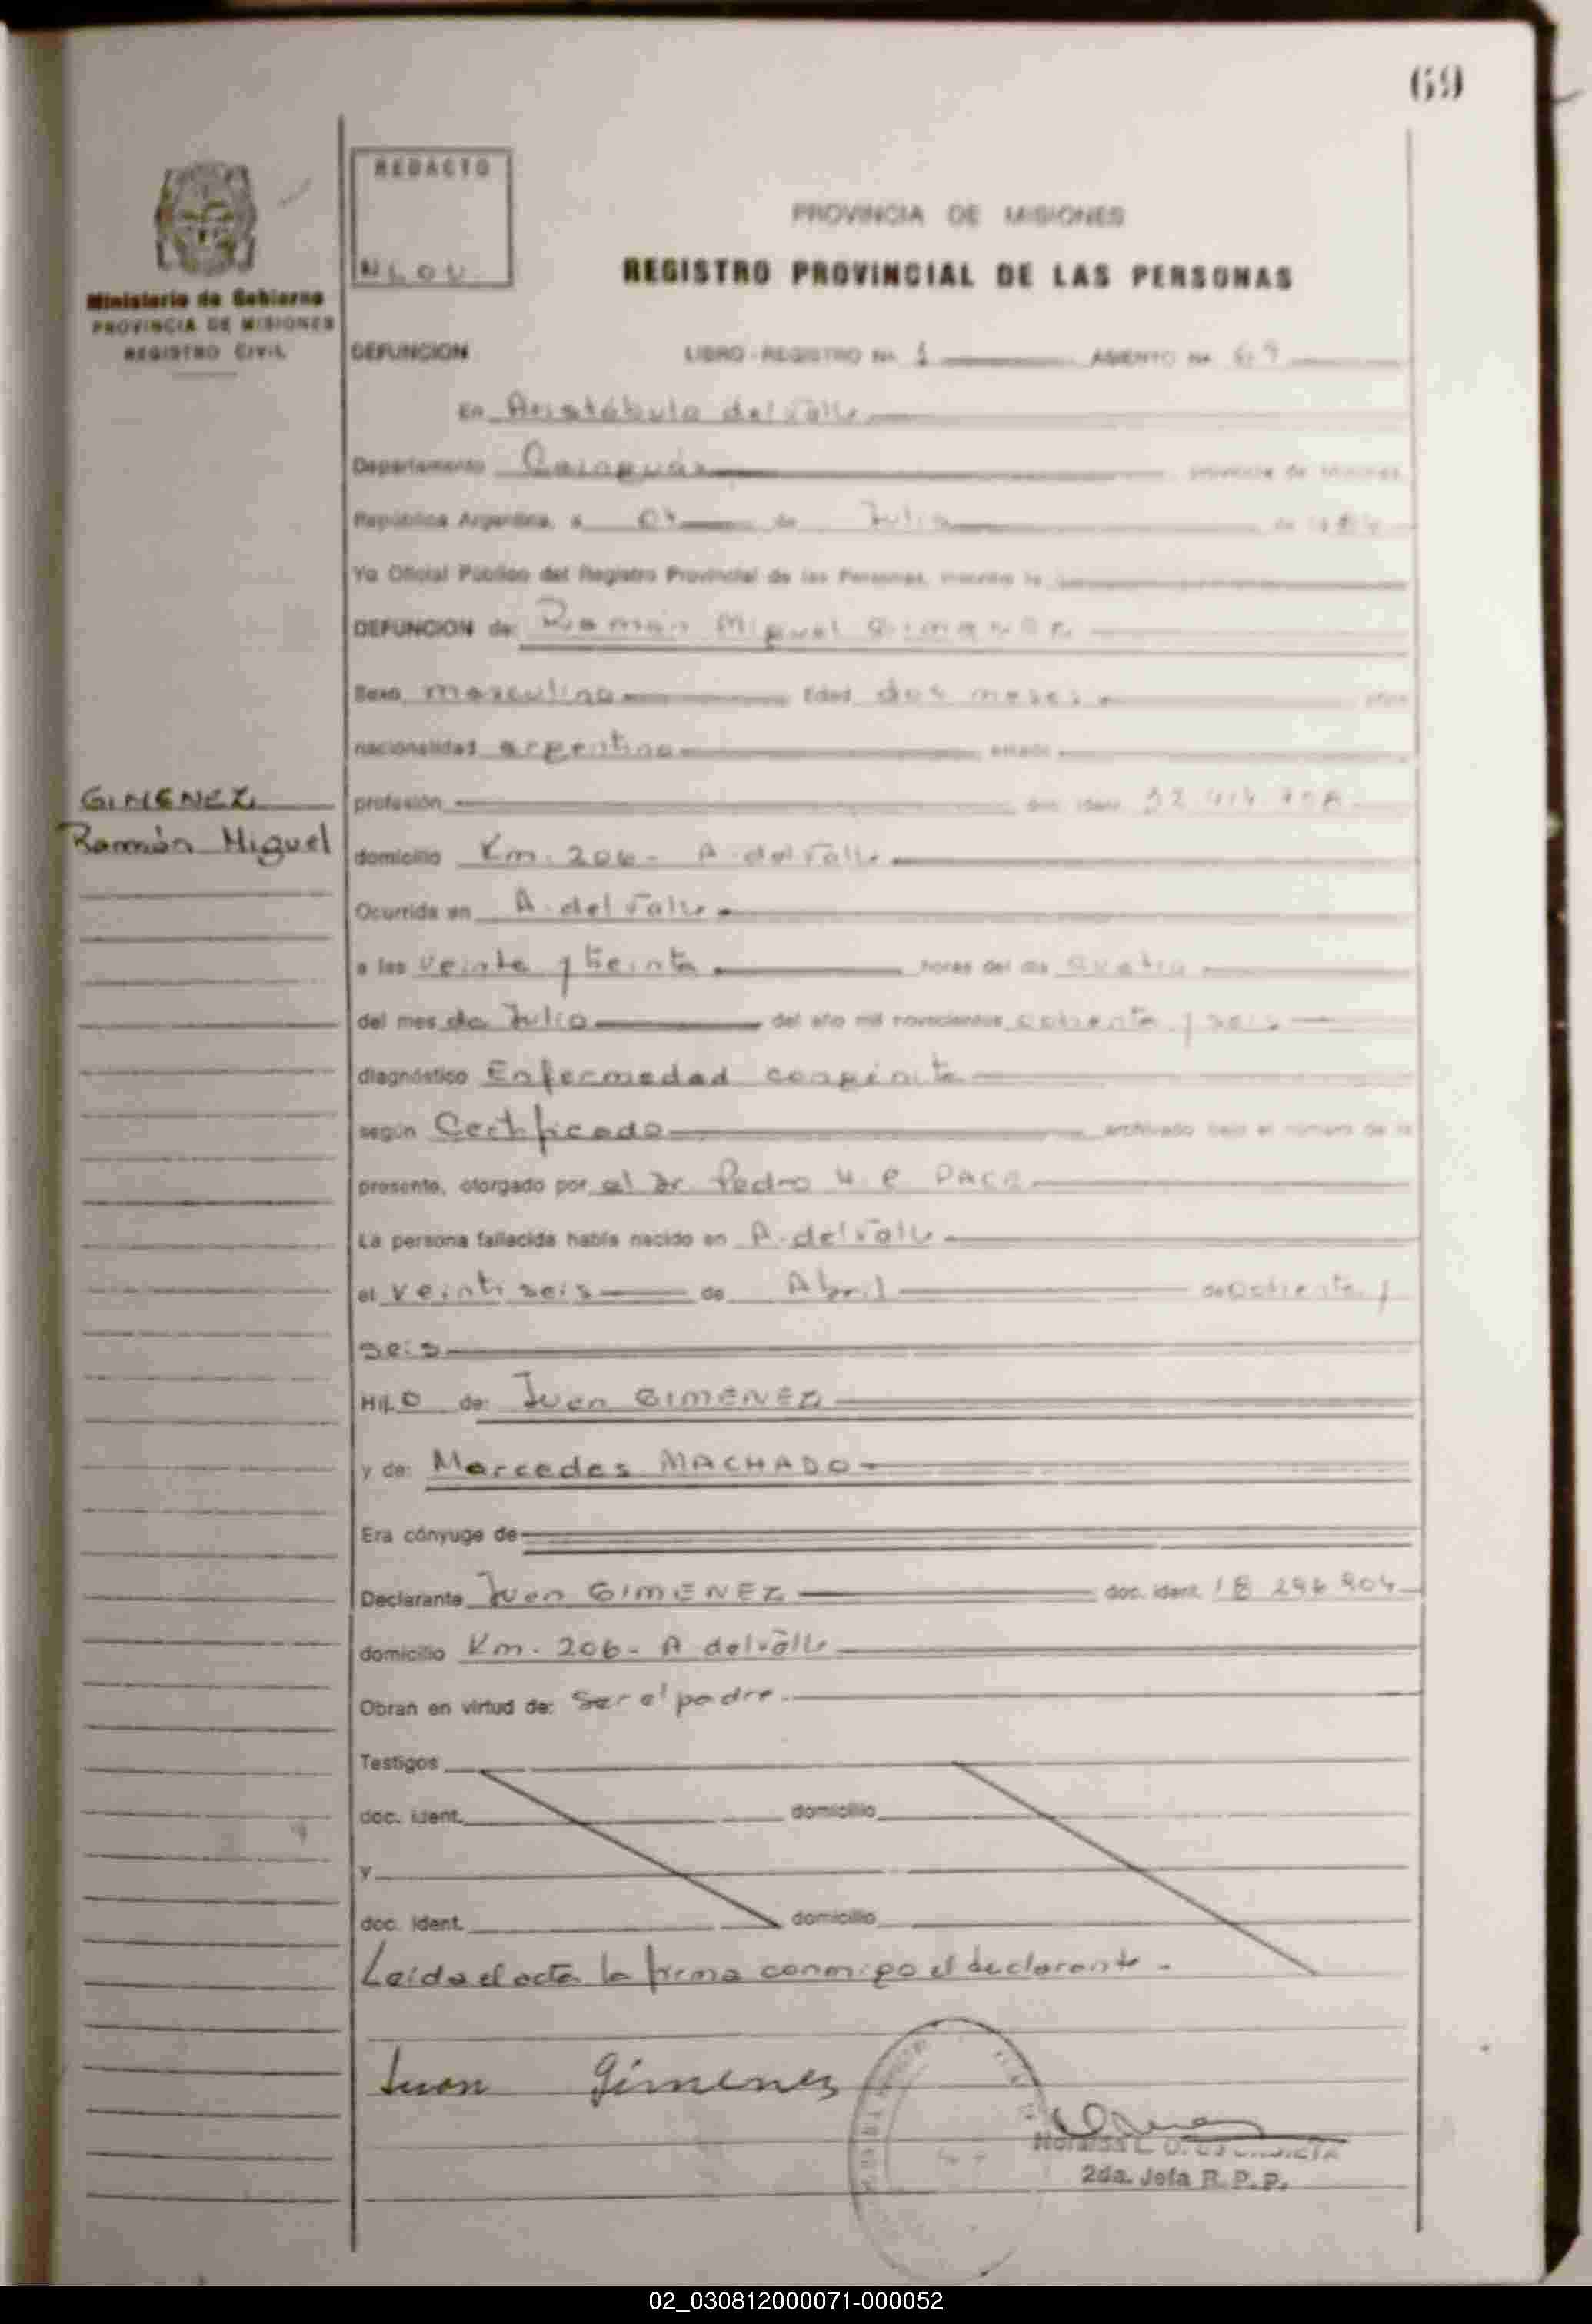 69
REDACTO
N L O U
Ministerio de Gobierno
PROVINCIA DE MISIONES
REGISTRO CIVIL
PROVINCIA DE MISIONES
REGISTRO PROVINCIAL DE LAS PERSONAS
DEFUNCION LIBRO - REGISTRO No. 1 ASIENTO No. 69
En Aristóbulo del Valle
Departamento Cainguás provincia de Misiones
República Argentina, a de Julio de
Yo Oficial Público del Registro Provincial de las Personas, inscribo la
DEFUNCION de: Ramón Miguel Gimenez
Sexo masculino Edad dos meses años
nacionalidad argentina estado
GIMENEZ
Ramón Miguel
profesión doc. ident.
domicilio Km. 206 - A. del Valle
Ocurrida en A. del Valle
a las veinte y treinta horas del día cuatro
del mes de Julio del año mil novecientos ochenta y seis
diagnóstico Enfermedad congénita
según Certificado archivado bajo el número de la
presente, otorgado por el Dr. Pedro
La persona fallecida había nacido en A. del Valle
el veintiseis de Abril de Ochenta y
seis
Hijo de: Juan GIMENEZ
y de: Mercedes MACHADO
Era cónyuge de
Declarante Juan GIMENEZ doc. ident. 18 296 904
domicilio Km. 206 - A del Valle
Obran en virtud de: Ser el padre.
Testigos
doc. ident. domicilio
y
doc. ident. domicilio
Leída el acta la firma conmigo el declarante.
Juan Gimenez
2da. Jefa R.P.P.
02_030812000071-000052